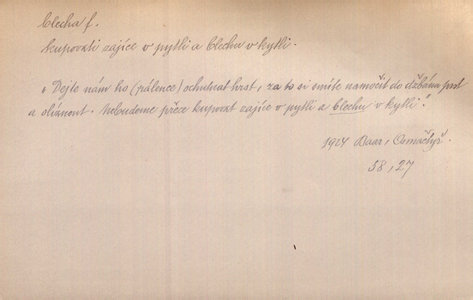 blecha f.
kupovati zajíce v pytli a blechu v kytli.
„Dejte nám ho (pálence) ochutnat hrst, za to si smíte namočit do džbánu prst
a olíznout. Nebudeme přece kupovat zajíce v pytli a blechu v kytli!
1924 Baar, Osmačtyř.
58, 27